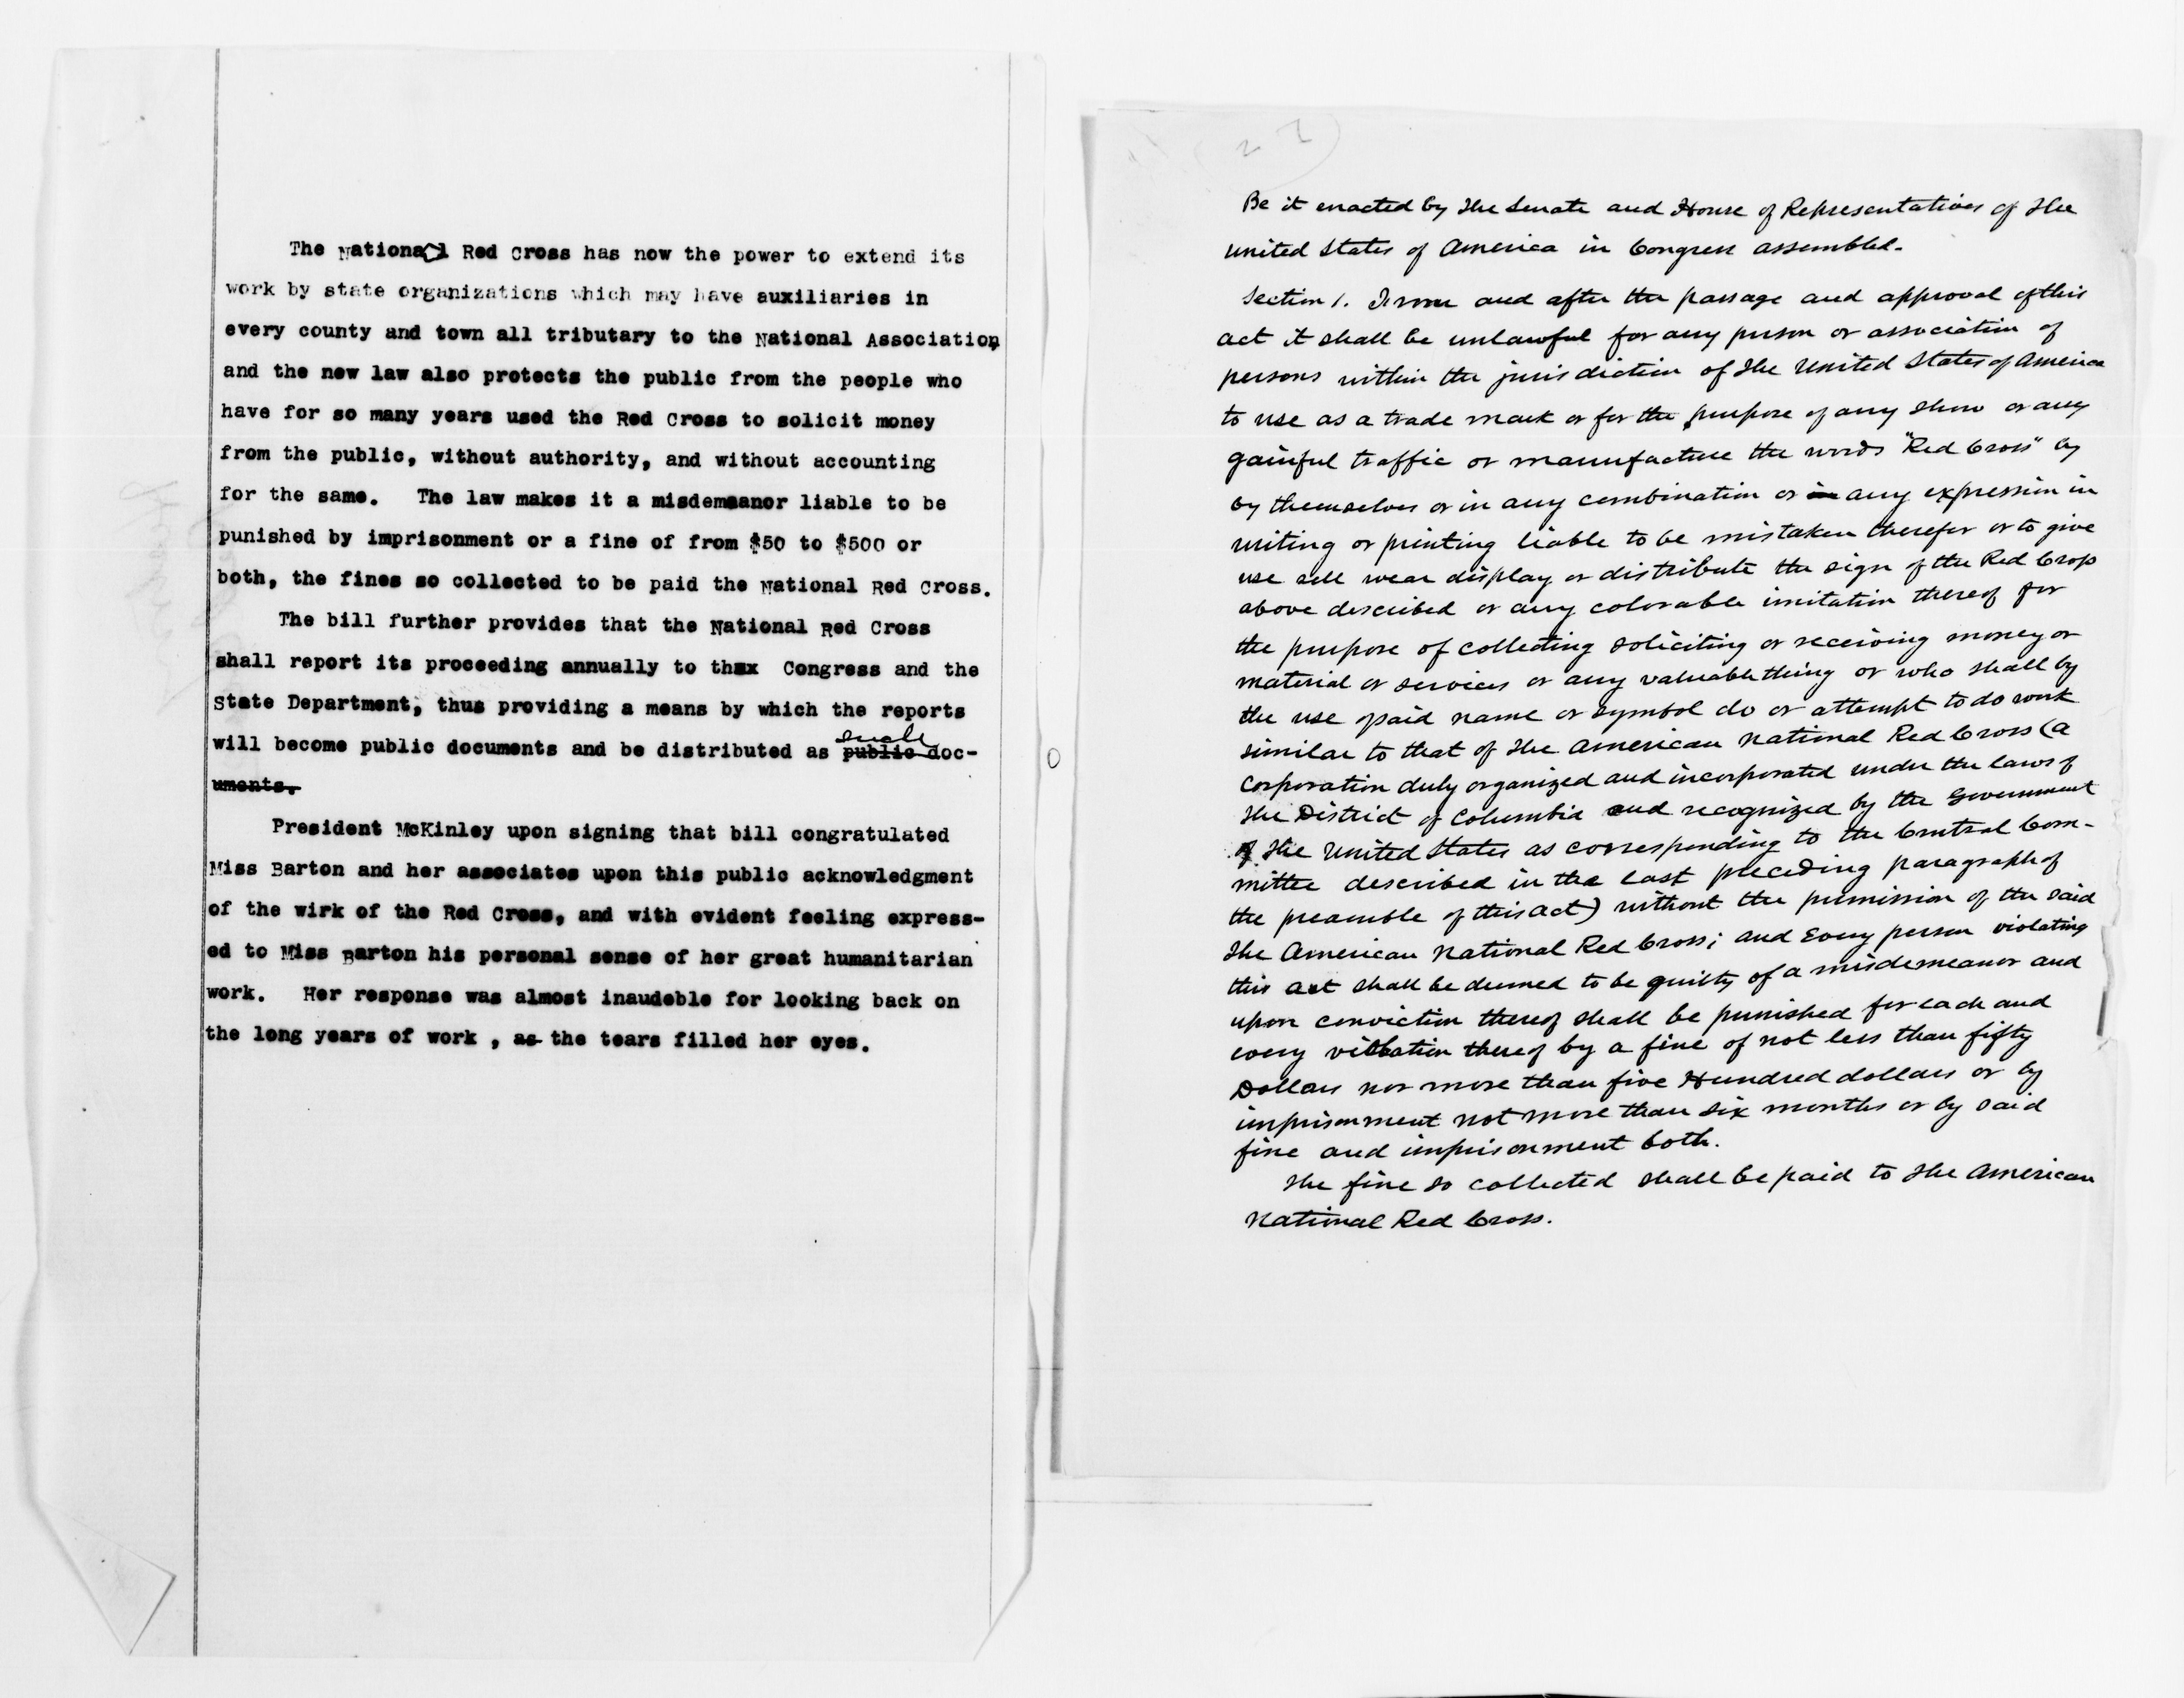 The National Red Cross has now the power to extend its
work by state organizations which may have auxiliaries in
every county and town all tributary to the National Association
and the new law also protects the public from the people who
have for so many years used the Red Cross to solicit money
from the public, without authority, and without accounting
for the same. The law makes it a misdemeanor liable to be
punished by imprisonment or a fine of from $50 to $500 or
both, the fines so collected to be paid the National Red Cross.
The bill further provides that the National Red Cross
shall report its proceeding annually to thex Congress and the
State Department, thus providing a means by which the reports
such
will become public documents and be distributed as public doc-
uments.
President McKinley upon signing that bill congratulated
Miss Barton and her associates upon this public acknowledgment
of the wirk of the Red Cross, and with evident feeling express-
ed to Miss Barton his personal sense of her great humanitarian
work. Her response was almost inaudeble for looking back on
the long years of work , as the tears filled her eyes.
22
Be it enacted by the Senate and House of Representatives of the
United States of America in Congress assembled.
Section 1. From and after the passage and approval of this
act it shall be unlawful for any person or association of
persons within the jurisdiction of the United States of America
to use as a trade mark or for the purpose of any show or any
gainful traffic or manufacture the words "Red Cross" by
by themselves or in any combination or in any expression in
writing or printing liable to be mistaken therefor or to give
use sell wear display or distribute the sign of the Red Cross
above described or any colorable imitation thereof for
the purpose of collecting soliciting or receiving money or
material or services or any valuable thing or who shall by
the use of said name or symbol do or attempt to do work
similar to that of the American National Red Cross (a
Corporation duly organized and incorporated under the laws of
the District of Columbia and recognized by the Government
of the United States as corresponding to the Central Com-
mittee described in the last preceding paragraph of
the preamble of this act) without the permission of the said
the American National Red Cross; and Every person violating
this act shall be deemed to be guilty of a misdemeanor and
upon conviction thereof shall be punished for each and
every violation thereof by a fine of not less than fifty
Dollars nor more than five Hundred dollars or by
imprisonment not more than six months or by said
fine and imprisonment both.
The fine so collected shall be paid to the American
National Red Cross.